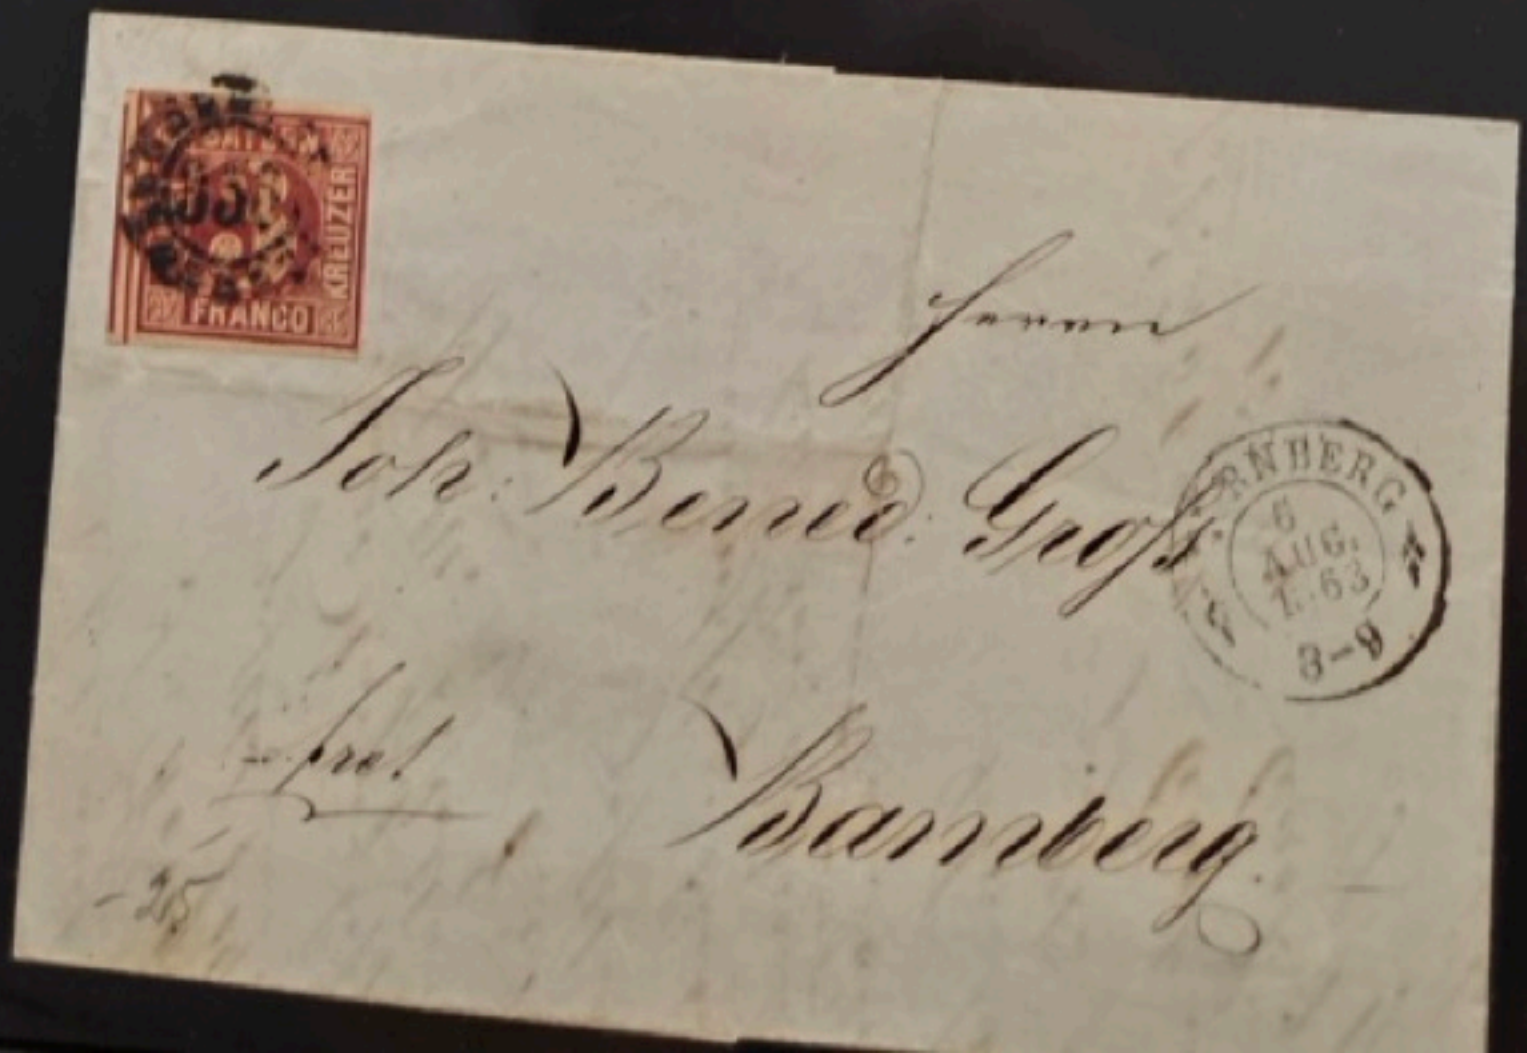 BAYERN
KREUZER
FRANCO
Herrn
Joh: Bened: Groß
NÜRNBERG
6
AUG.
63
8-9
frco!
Bamberg.
- 25